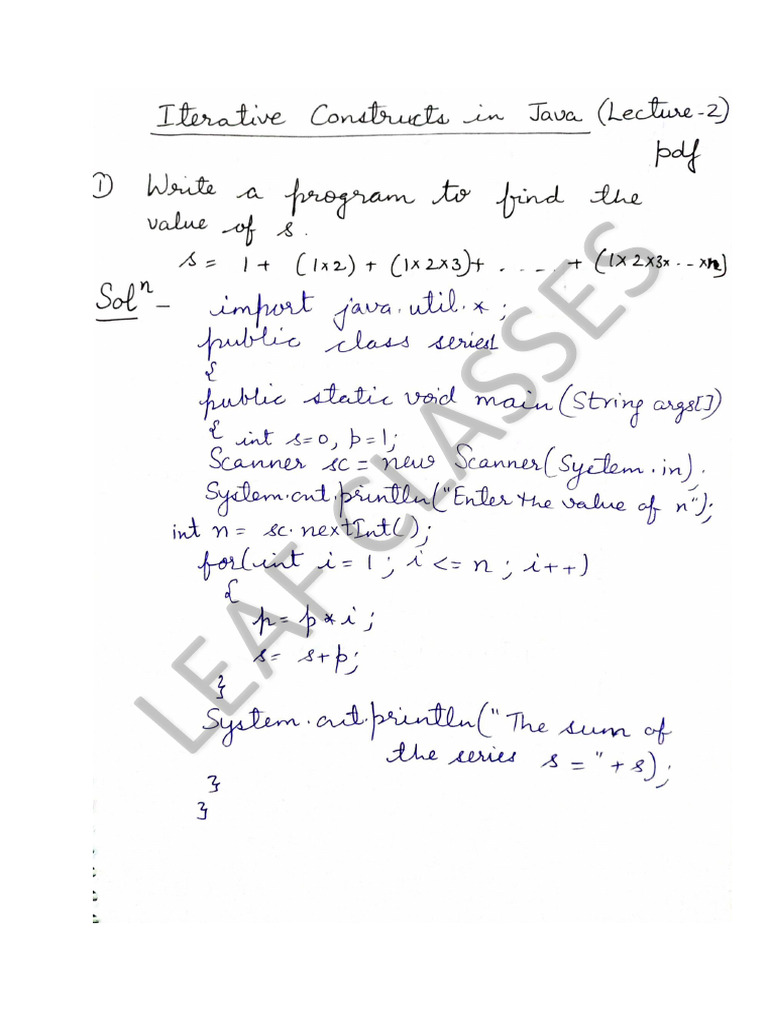 Iterative Constructs in Java (Lecture-2)
pdf
① Write a program to find the
value of s.
s = 1 + (1×2) + (1×2×3)+ ..... + (1×2×3×...×n)
Solⁿ – import java.util.*;
public class series1
{
public static void main(String args[])
{ int s=0, p=1;
Scanner sc = new Scanner(System.in).
System.out.println("Enter the value of n");
int n = sc.nextInt();
for(int i = 1 ; i <= n ; i++)
{
p = p * i ;
s = s+p;
}
System.out.println("The sum of
the series s = " + s);
}
}
LEAF CLASSES